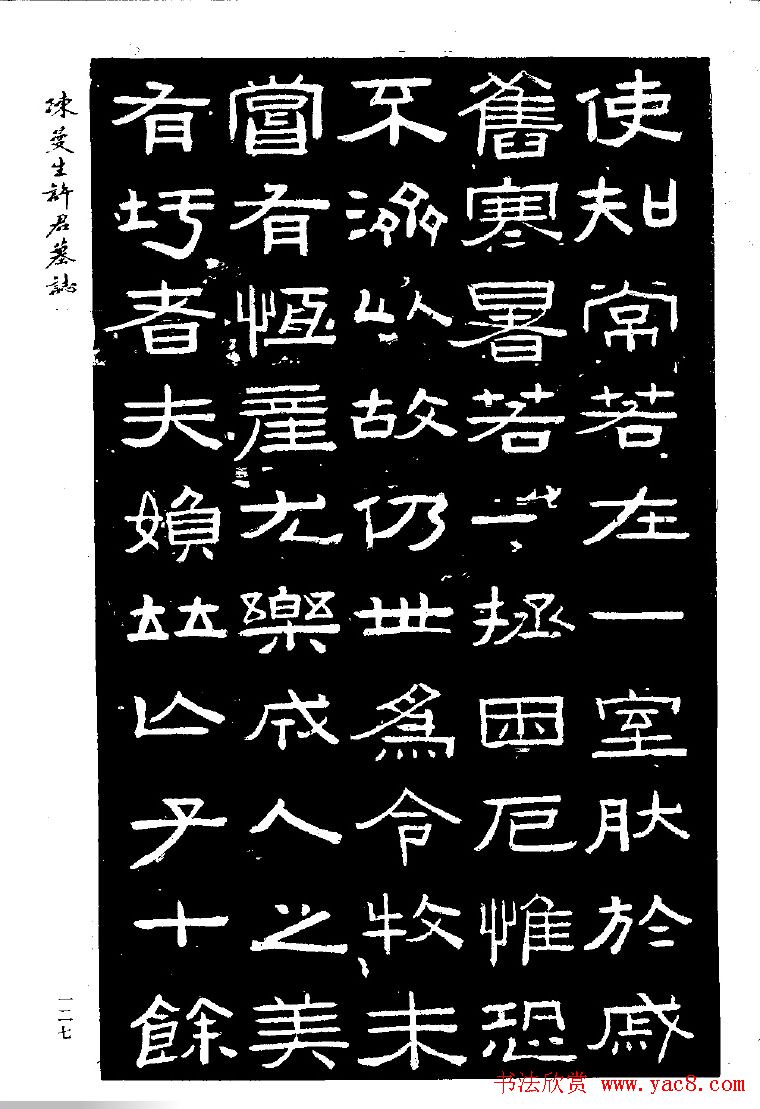 使知常若在一室肰於戚
舊寒暑若一拯困厄惟恐
不以故仍世爲令牧未
嘗有恆產尤樂成人之美
有圬者夫媍竝亡予十餘
陳曼生許君墓誌
一二七
书法欣赏 www.yac8.com